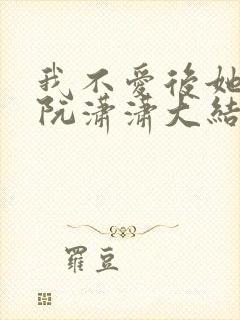 我不爱後她
阮潇潇大結
羅豆